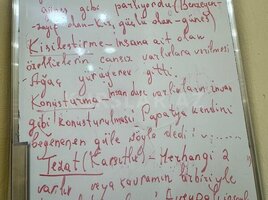 güneş gibi parlıyordu (Benzeyen-
zayıf olan-Kız, güçlü olan-güneş)
Kişileştirme-insana ait olan
özelliklerin cansız varlıklara verilmesi
- Ağaç yürüyerek gitti.
Konuşturma-insan dışı varlıkların insan
gibi konuşturulması Papatya kendini
beğenen güle şöyle dedi:
Tezat (Karşıtlık)-Herhangi 2
varlık veya kavramın birbiriyle